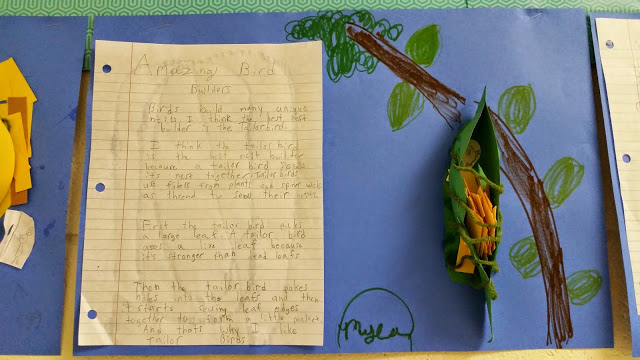 Amazing Bird
Builders
Birds build many unique
nests. I think the best nest
builder is the Tailorbird.
I think the tailor bird
is the best nest builder
because a tailor bird
it's nest together. Tailor birds
use fibers from plants and spider webs
as thread to sew their nests.
First the tailor bird picks
a large leaf. A tailor bird
a live leaf because
it's stronger than dead leafs
Then the tailor bird pokes
holes into the leafs and then
it starts sewing leaf edges
together to form a little pocket.
And thats why I like
Tailor Birds.